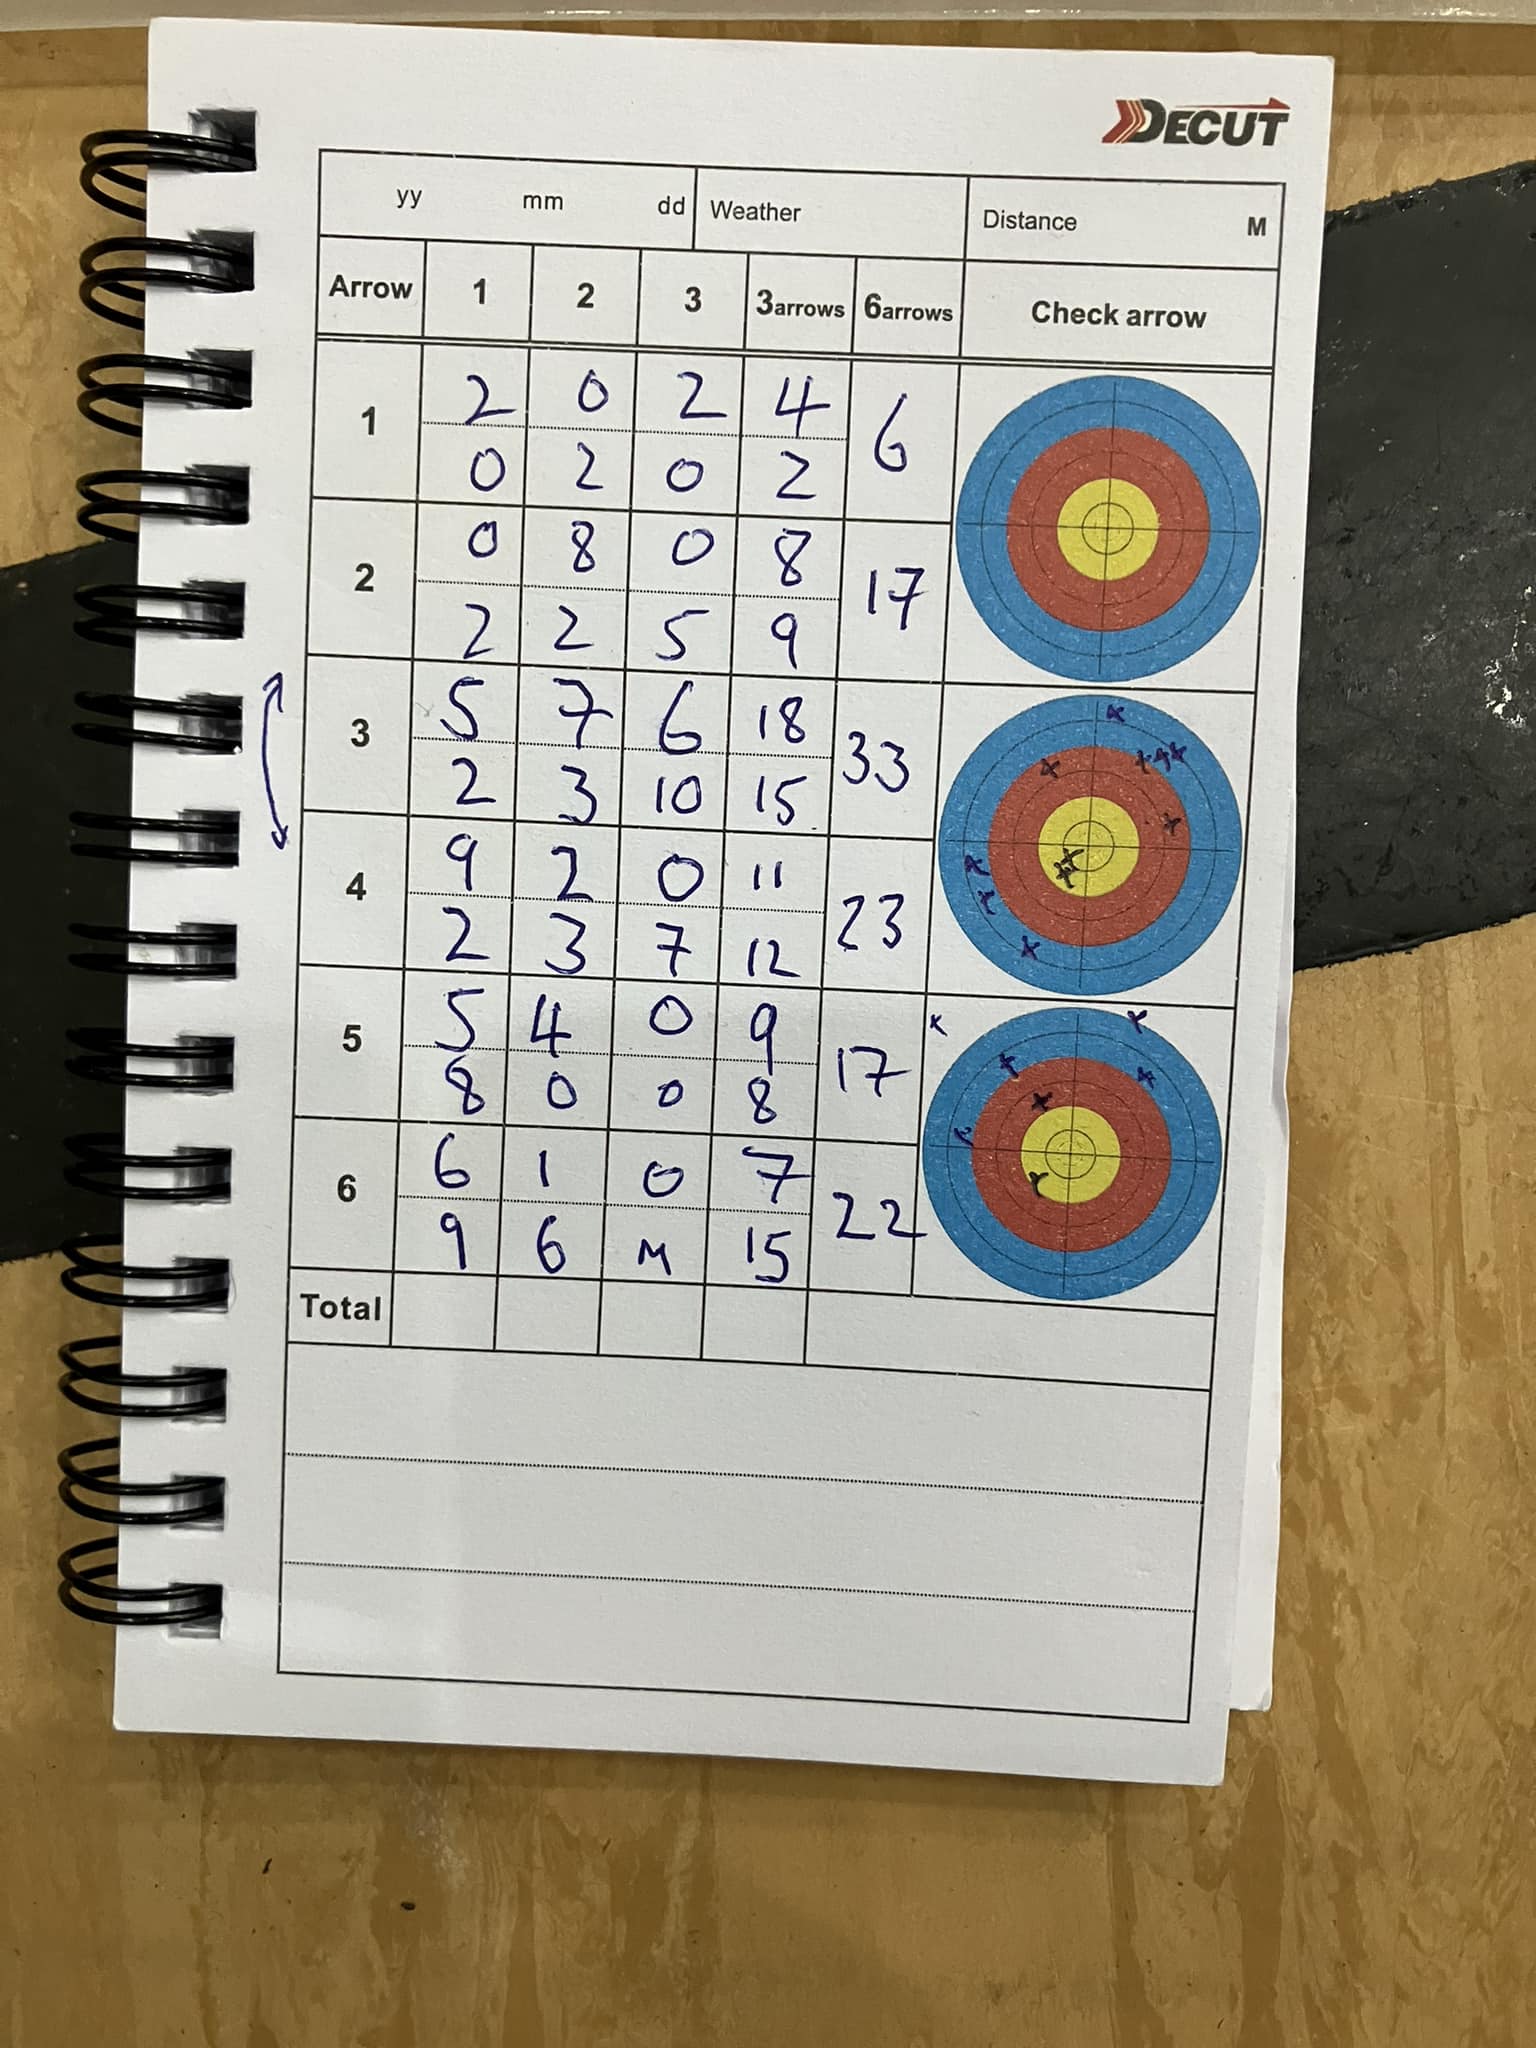 DECUT
yy mm dd Weather Distance M
Arrow 1 2 3 3arrows 6arrows Check arrow
1 2 0 2 4 6
0 2 0 2
2 0 8 0 8 17
2 2 5 9
3 5 7 6 18 33
2 3 10 15
4 9 2 0 11 23
2 3 7 12
5 5 4 0 9 17
8 0 0 8
6 6 1 0 7 22
9 6 M 15
Total